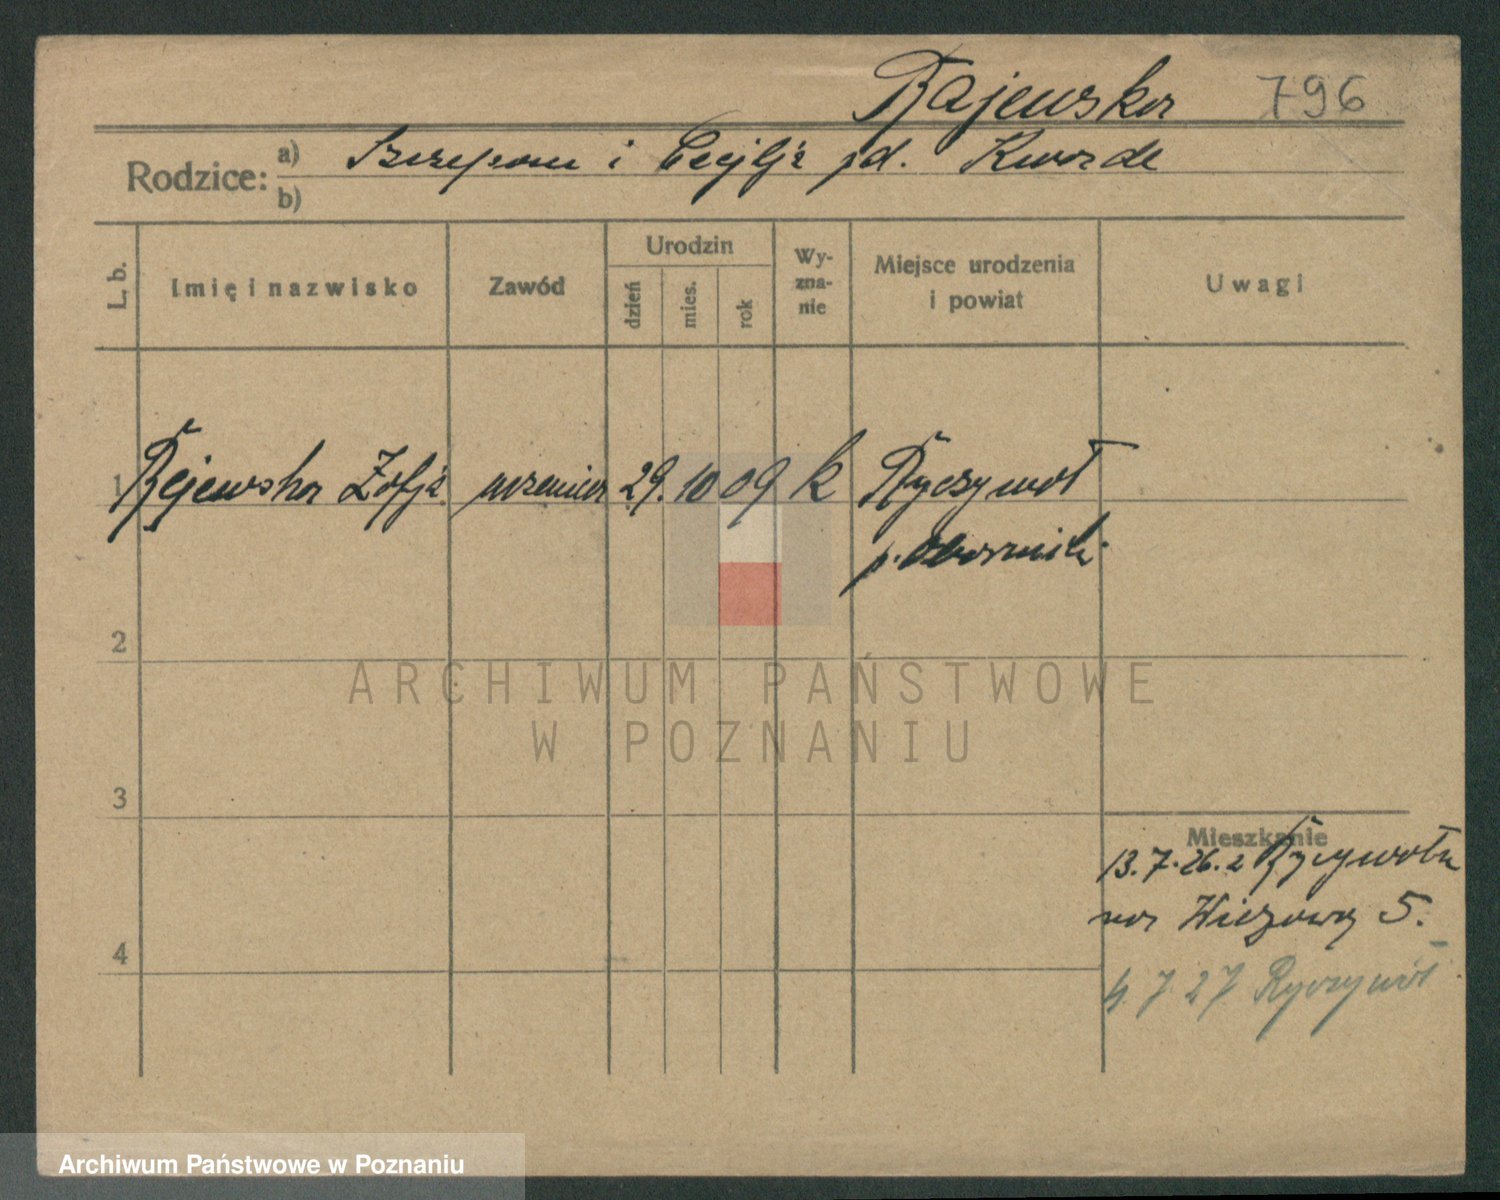 Rajewska 796
Rodzice: a) Szczepan i Cecylja zd. Kwarda
b)
L. b. Imię i nazwisko Zawód Urodzin dzień mies. rok Wyznanie Miejsce urodzenia i powiat Uwagi
1 Rajewska Zofja uczenica 29. 10 09 k Ryczywół
p. Oborniki
2
ARCHIWUM PAŃSTWOWE
W POZNANIU
3
Mieszkanie
13.7.26. z Ryczywołu
na Wiązową 5.
4
4 7 27 Ryczywół
Archiwum Państwowe w Poznaniu